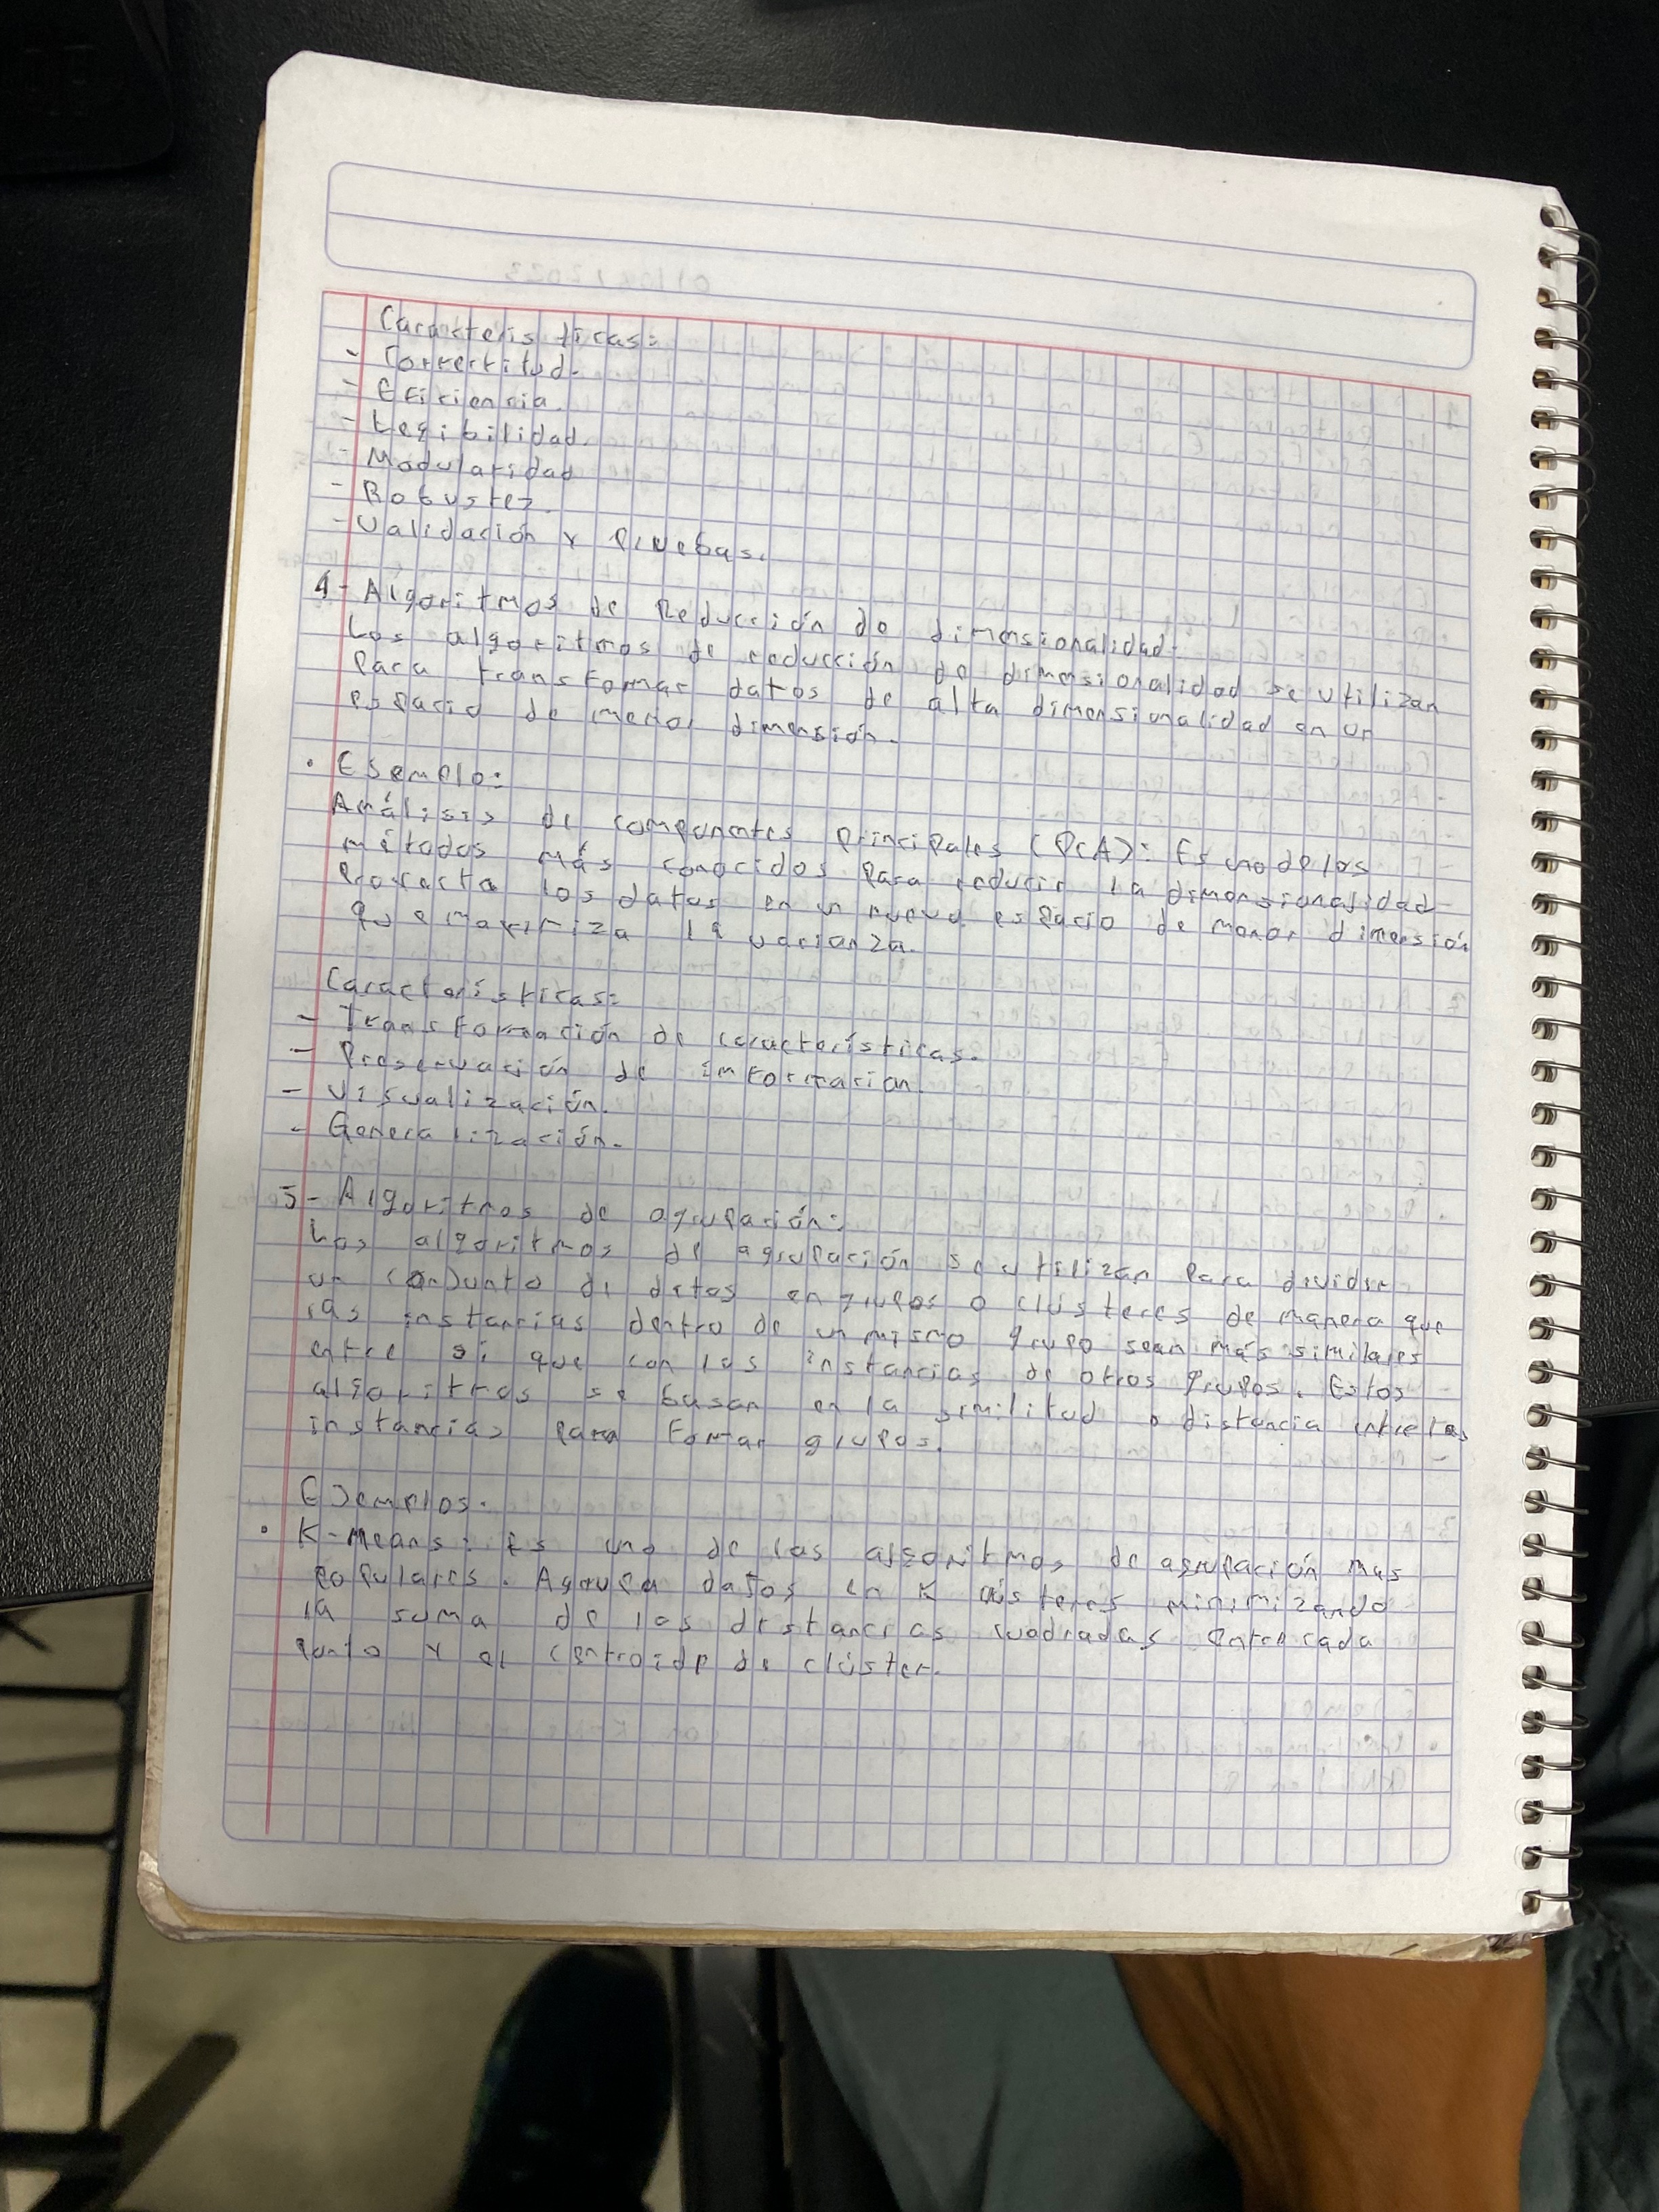 Características:
- Correctitud.
- Eficiencia.
- Legibilidad.
- Modularidad
- Robustez.
- Validación y Pruebas.
4- Algoritmos de Reducción de dimensionalidad:
Los algoritmos de reducción de dimensionalidad se utilizan
Para transformar datos de alta dimensionalidad en un
espacio de menor dimensión.
• Ejemplo:
Análisis de componentes Principales (PCA): Es uno de los
métodos más conocidos para reducir la dimensionalidad
Proyecta los datos en un nuevo espacio de menor dimensión
que maximiza la varianza.
Características:
- Transformación de características.
- Preservación de información.
- Visualización.
- Generalización.
5- Algoritmos de agrupación:
Los algoritmos de agrupación se utilizan Para dividir
un conjunto de datos en grupos o clústeres de manera que
las instancias dentro de un mismo grupo sean más similares
entre sí que con las instancias de otros grupos. Estos
algoritmos se basan en la similitud o distancia entre las
instancias para formar grupos.
Ejemplos.
• K-Means: Es uno de los algoritmos de agrupación mas
populares. Agrupa datos en K clústeres minimizando
la suma de las distancias cuadradas entre cada
punto y el centroide de clúster.